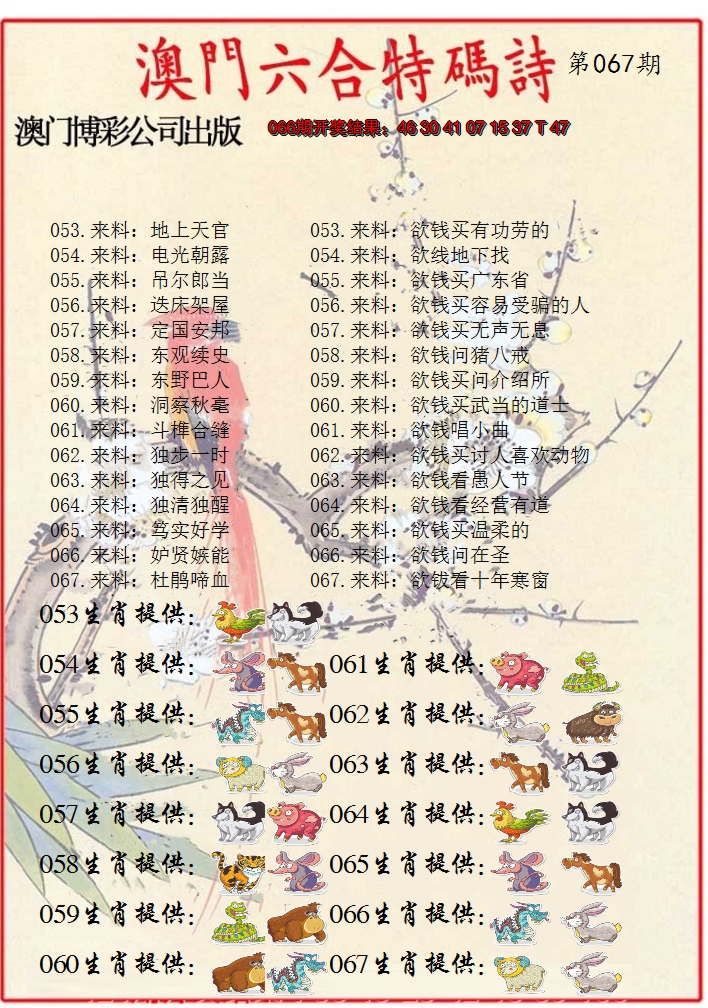 澳門六合特碼詩 第067期
澳门博彩公司出版 066期开奖结果：46 30 41 07 15 37 T 47
053.来料：地上天官 053.来料：欲钱买有功劳的
054.来料：电光朝露 054.来料：欲线地下找
055.来料：吊尔郎当 055.来料：欲钱买广东省
056.来料：迭床架屋 056.来料：欲钱买容易受骗的人
057.来料：定国安邦 057.来料：欲钱买无声无息
058.来料：东观续史 058.来料：欲钱问猪八戒
059.来料：东野巴人 059.来料：欲钱买问介绍所
060.来料：洞察秋毫 060.来料：欲钱买武当的道士
061.来料：斗榫合缝 061.来料：欲钱唱小曲
062.来料：独步一时 062.来料：欲钱买讨人喜欢动物
063.来料：独得之见 063.来料：欲钱看愚人节
064.来料：独清独醒 064.来料：欲钱看经营有道
065.来料：笃实好学 065.来料：欲钱买温柔的
066.来料：妒贤嫉能 066.来料：欲钱问在圣
067.来料：杜鹃啼血 067.来料：欲钹看十年寒窗
053生肖提供：
054生肖提供： 061生肖提供：
055生肖提供： 062生肖提供：
056生肖提供： 063生肖提供：
057生肖提供： 064生肖提供：
058生肖提供： 065生肖提供：
059生肖提供： 066生肖提供：
060生肖提供： 067生肖提供：